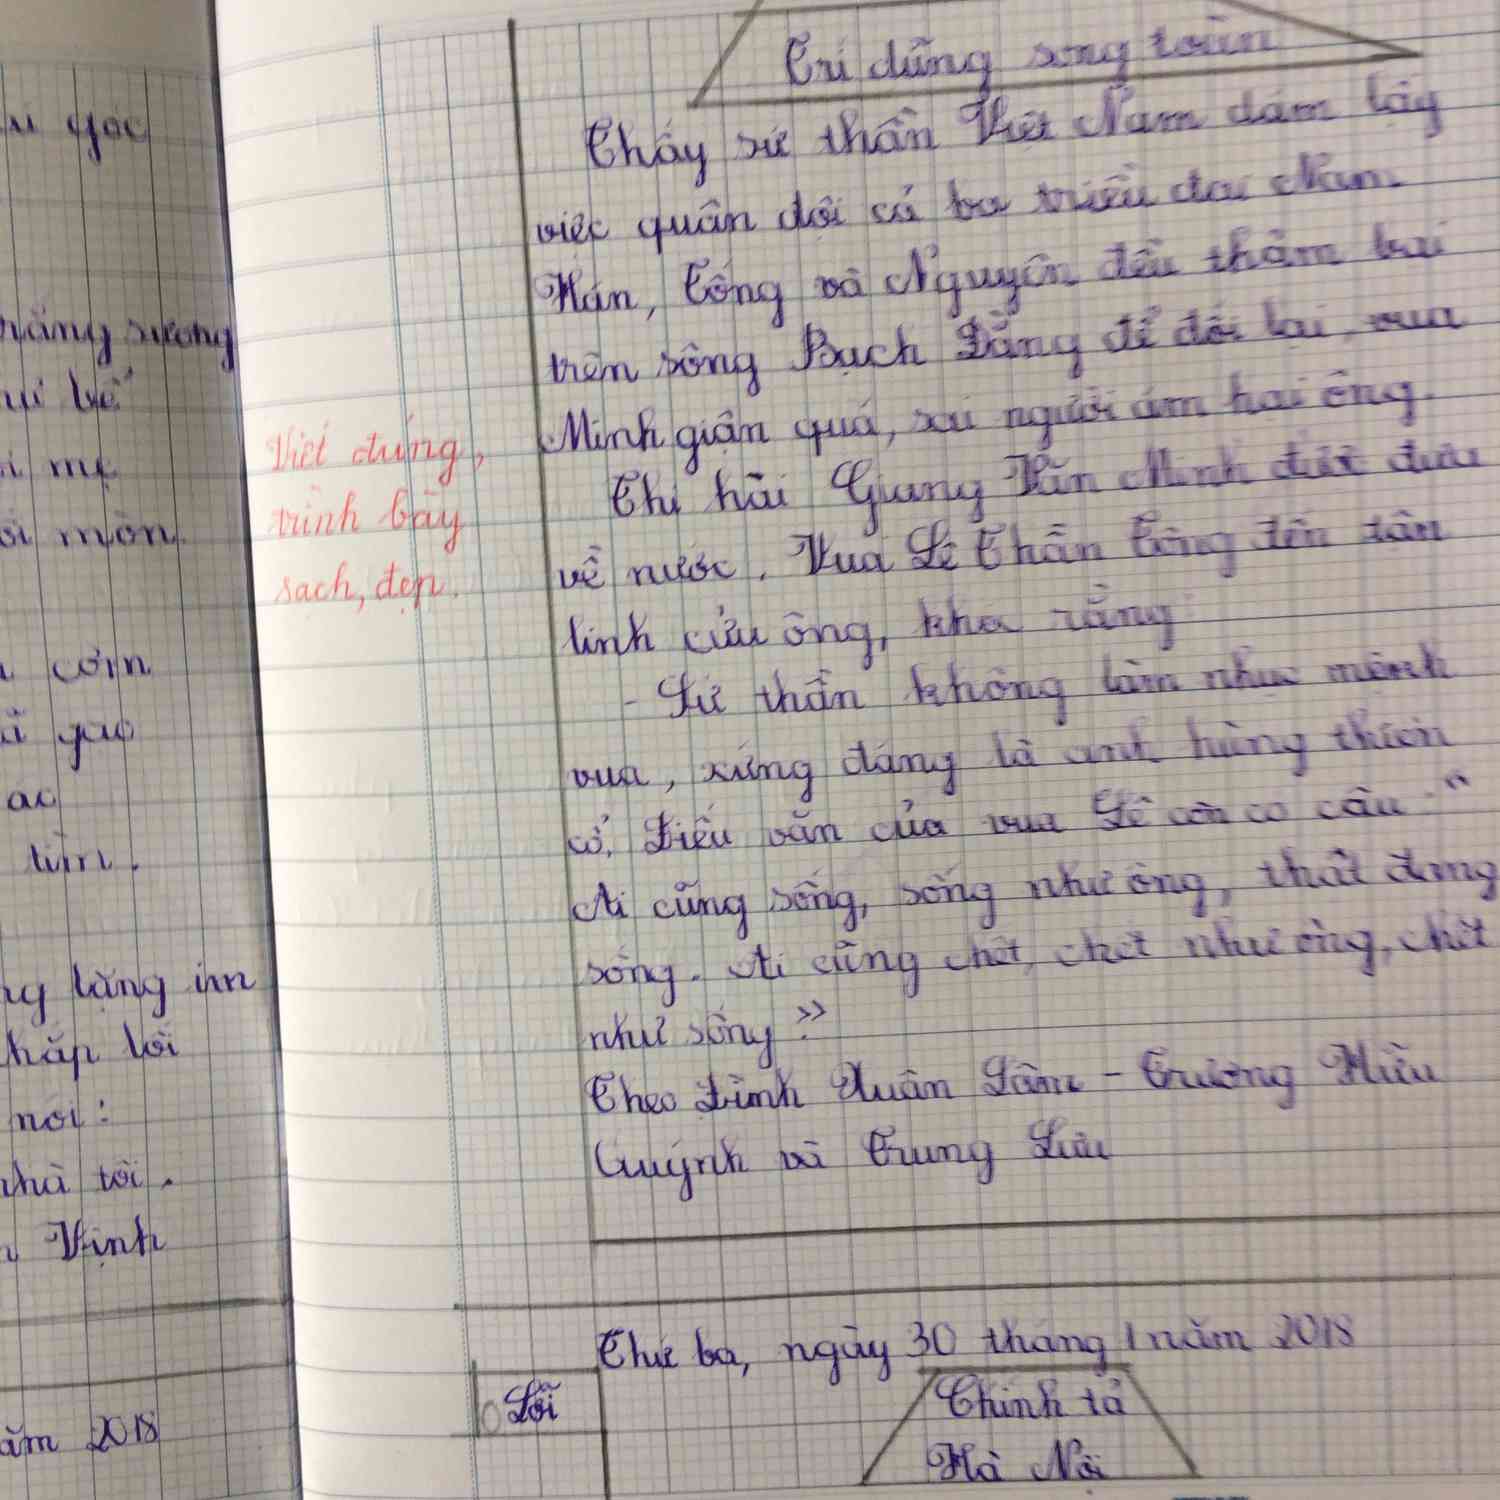 u góc
nắng sương
i mẹ
ôi môn.
cơm
ac
làm.
ng lặng im
nói:
nhà tôi.
Vịnh
ăm 2018
Viết đúng,
trình bày
sạch, đẹp.
Trí dũng song toàn
Thấy sứ thần Việt Nam dám lấy
việc quân đội cả ba triều đại Nam
Hán, Tống và Nguyên đều thảm bại
trên sông Bạch Đằng để đối lại, vua
Minh giận quá, sai người ám hại ông.
Thi hài Giang Văn Minh được đưa
về nước. Vua Lê Thần Tông đến tận
linh cửu ông, khóc rằng
- Sứ thần không làm nhục mệnh
vua, xứng đáng là anh hùng thiên
cổ. Điếu văn của vua Lê còn có câu: "
Ai cũng sống, sống như ông, thật đáng
sống. Ai cũng chết, chết như ông, chết
như sống"
Theo Đinh Xuân Lâm - Trương Hữu
Quýnh và Trung Lưu
Thứ ba, ngày 30 tháng 1 năm 2018
Lỗi
Chính tả
Hà Nội